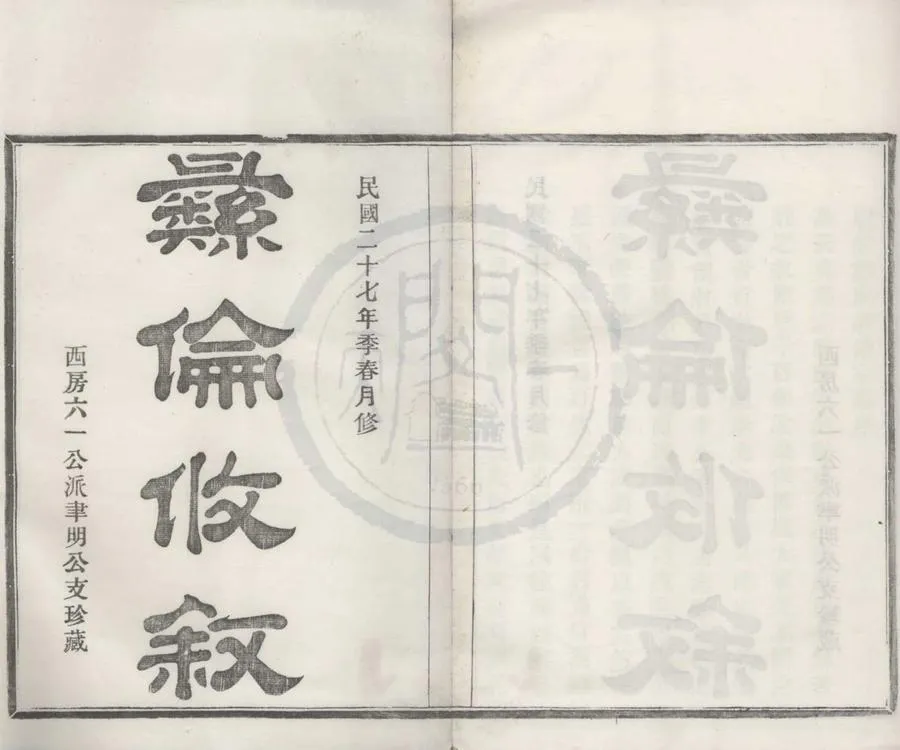 民國二十七年季春月修
彝倫攸敘
西房六一公派聿明公支珍藏